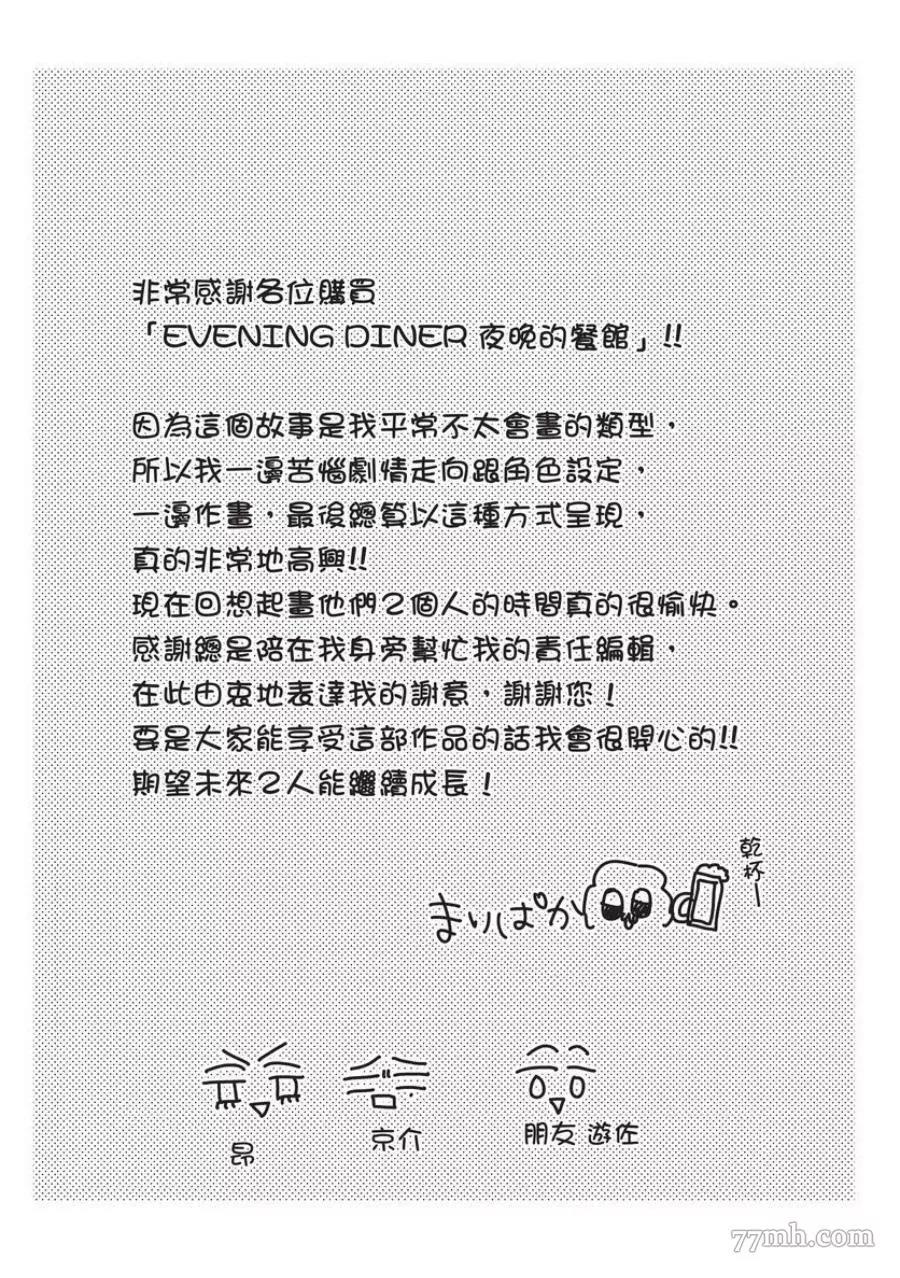 非常感謝各位購買
「EVENING DINER 夜晚的餐館」!!
因為這個故事是我平常不太會畫的類型，
所以我一邊苦惱劇情走向跟角色設定，
一邊作畫，最後總算以這種方式呈現，
真的非常地高興!!
現在回想起畫他們2個人的時間真的很愉快。
感謝總是陪在我身旁幫忙我的責任編輯，
在此由衷地表達我的謝意，謝謝您！
要是大家能享受這部作品的話我會很開心的!!
期望未來2人能繼續成長！
乾杯ー
まりぱか
昂
京介
朋友 遊佐
77mh.com